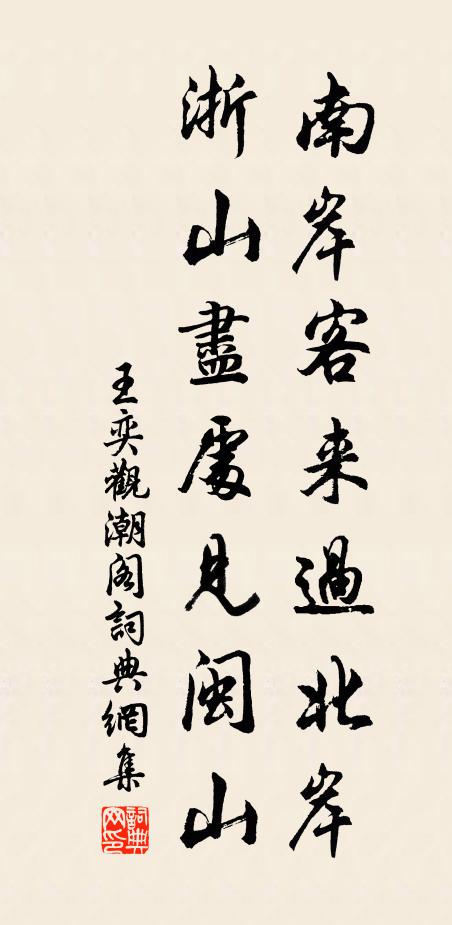 南岸客来過北岸
浙山盡處見閩山
王奕觀潮閣詞典網集
詞典網印